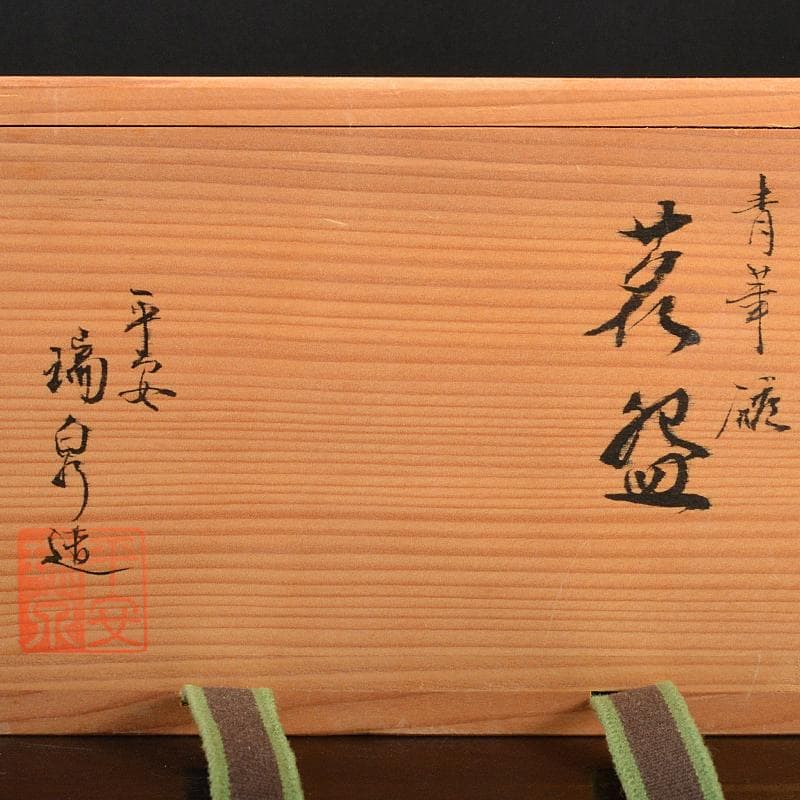 青華
茗盌
平安
瑞泉造
平安
瑞泉